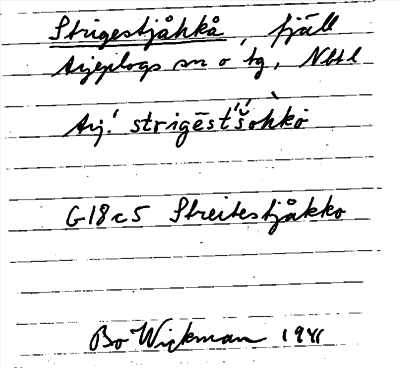 Strigestjåhkå, fjäll
Arjeplogs sn o tg, Nbtl
Arj. strigēst'šohkò
G18c5 Streitestjåkko
Bo Wickman 1941